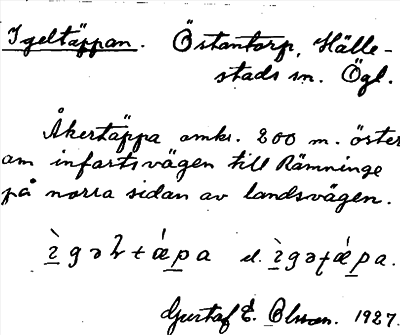 Igeltäppan. Östantorp, Hälle-
stads sn. Ögl.
Åkertäppa omkr. 200 m. öster
om infartsvägen till Rämninge
på norra sidan av landsvägen.
Gustaf E. Olsson. 1927.